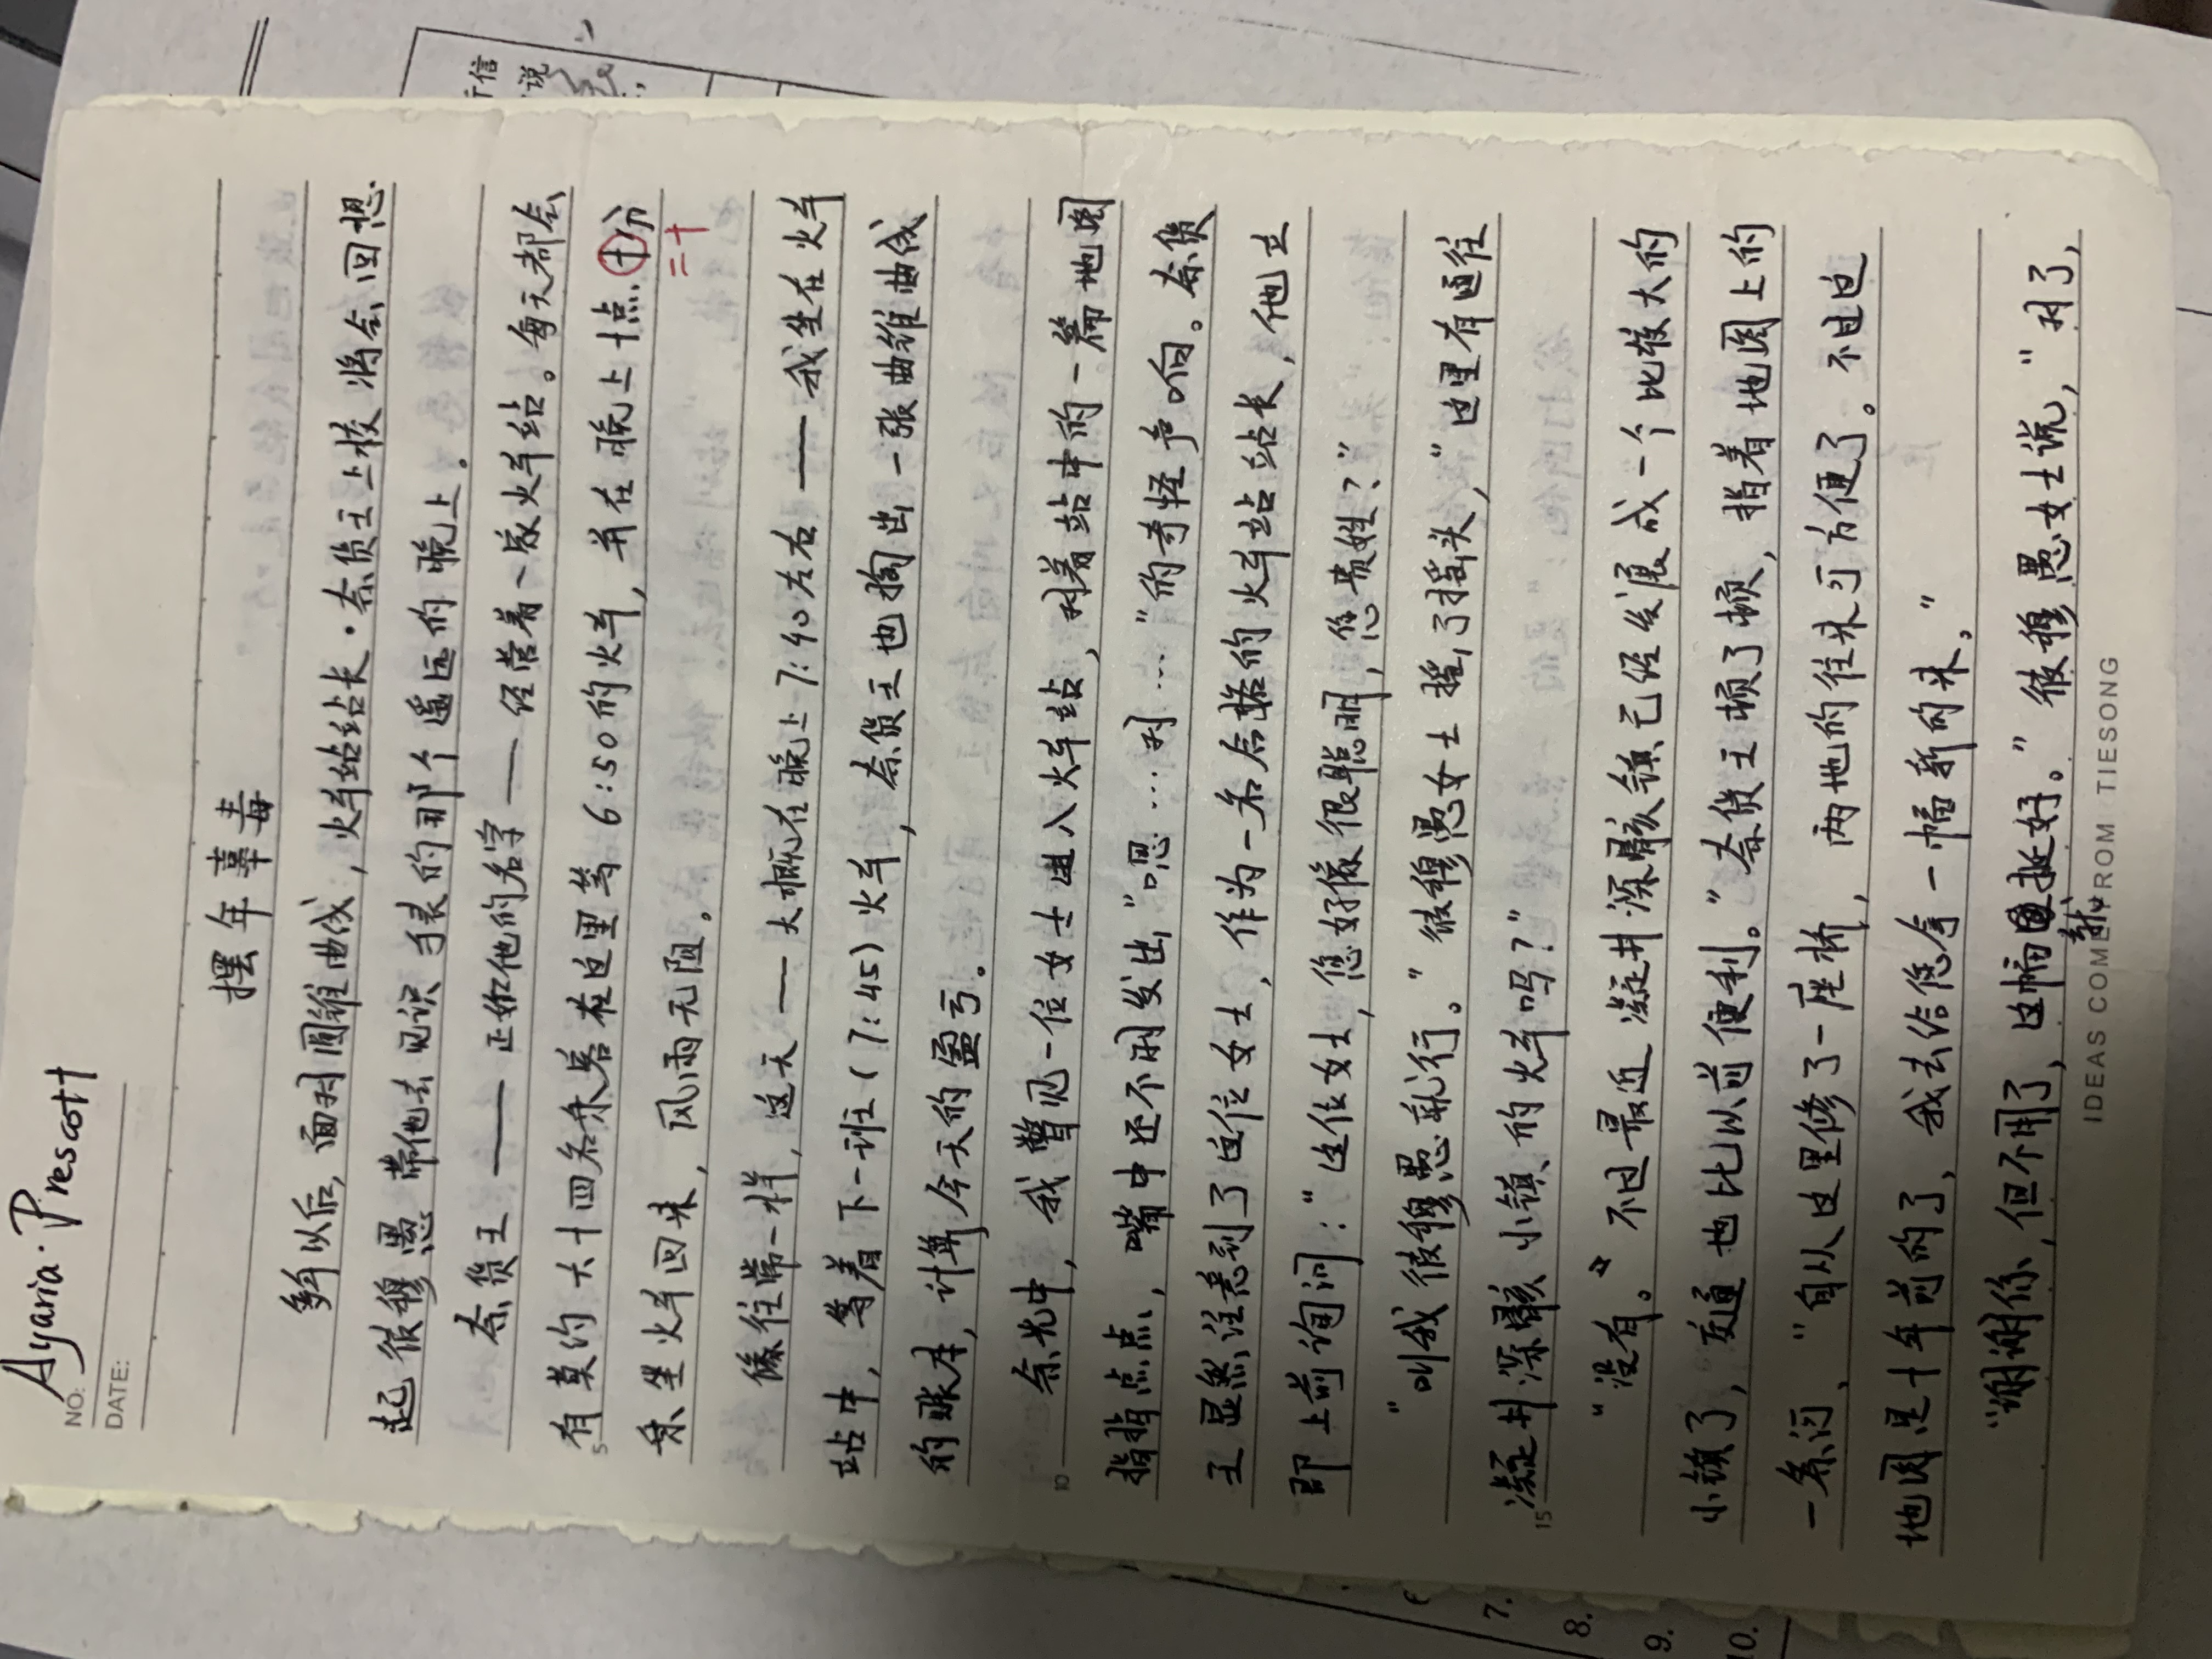 Ayaria·Prescott
NO:
DATE:
摆年辜毒
多年以后，面对圆锥曲线，火车站站长·奈货王上校 将会回想
起彼穆愚带他去见识手表的那个遥远的晚上。
奈货王——正如他的名字——经营着一家火车站。每天都会
有莫约六十四名乘客在这里等6:50的火车，并在晚上十点十分
=十
5
乘坐火车回来，风雨无阻。
像往常一样，这天——大概在晚上7:40左右——我坐在火车
站中，等着下一班（7:45）火车，奈货王也掏出一张曲锥曲线
的账本，计算今天的盈亏。
10
余光中，我瞥见一位女士进入火车站，对着站中的一篇地图
指指点点，嘴中还不时发出“嗯…对…”的奇怪声响。奈货
王显然注意到了这位女士，作为一名合格的火车站站长，他立
即上前询问：“这位女士，您好像很聪明，您贵姓？”
“叫我彼穆愚就行。”彼穆愚女士摇了摇头，“这里有通往
15
凝井深骸小镇的火车吗？”
“没有。不过最近凝井深骸镇已经发展成一个比较大的
小镇了，交通也比以前便利。”奈货王顿了顿，指着地图上的
一条河，“自从这里修了一座桥，两地的往来可方便了。不过这
地图是十年前的了，我去给您拿一幅新的来。”
“谢谢你，但不用了，这幅就挺好。”彼穆愚女士说，“对了，
IDEAS COME FROM TIESONG
行信
说
6
7.
8.
9.
10.